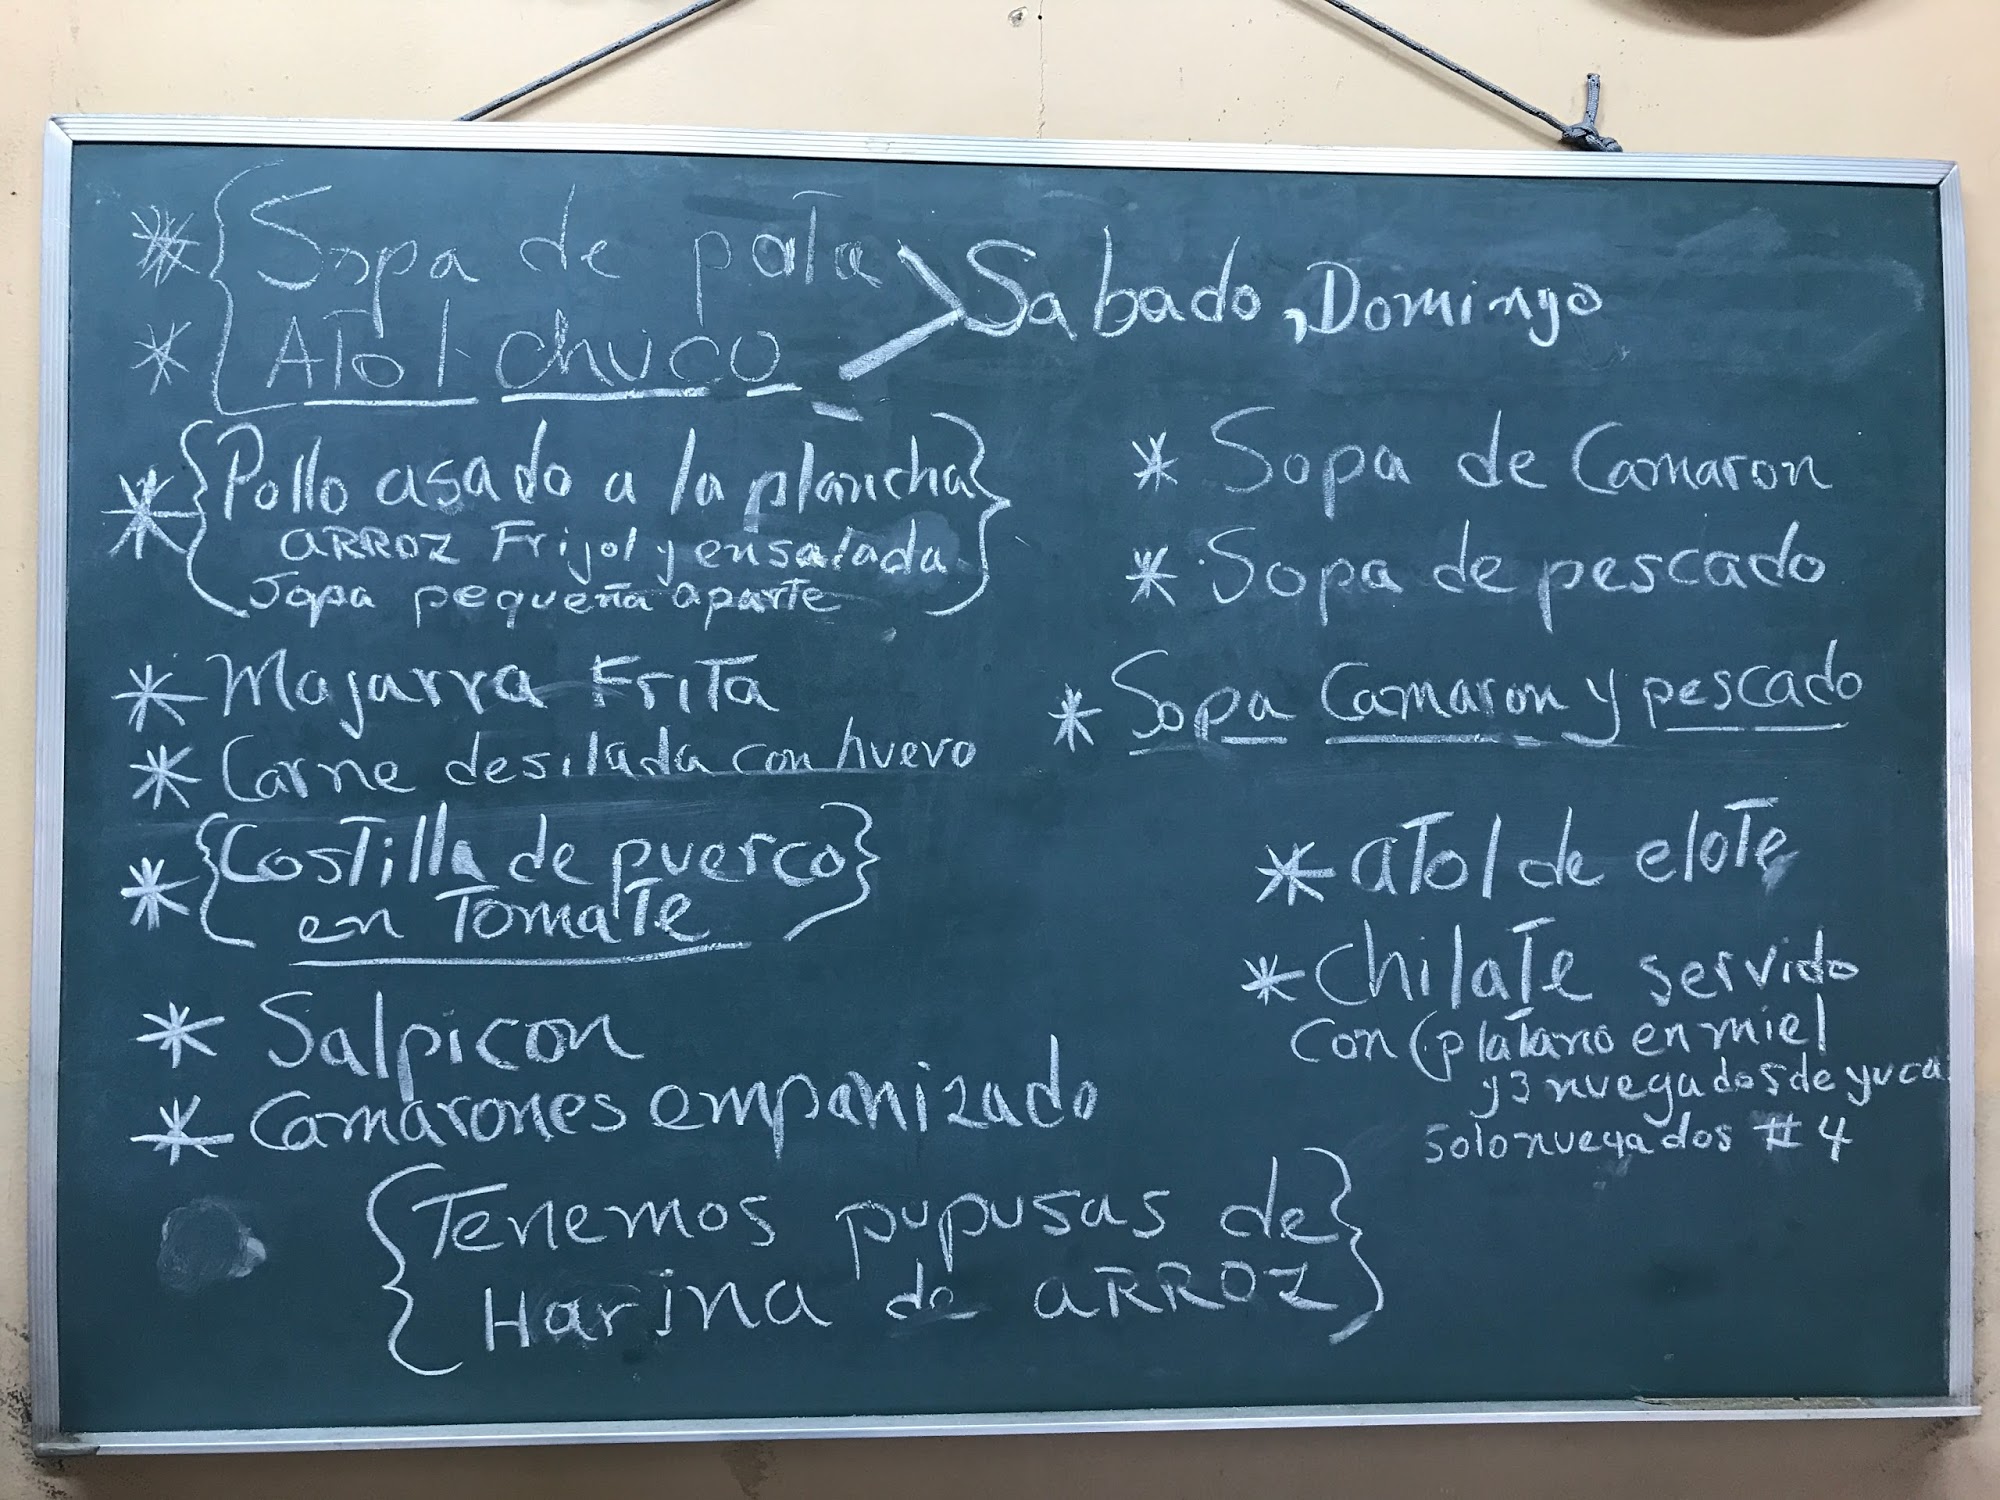 * Sopa de pata
* Atol chuco
> Sabado, Domingo
* Pollo asado a la plancha
ARROZ Frijol y ensalada
Sopa pequeña aparte
* Majarra Frita
* Carne desilada con huevo
* Costilla de puerco
en Tomate
* Salpicon
* Camarones empanizado
* Sopa de Camaron
* Sopa de pescado
* Sopa Camaron y pescado
* atol de elote
* chilate servido
con (platano en miel
y 3 nuegados de yuca
solo nuegados # 4
{Tenemos pupusas de
Harina de ARROZ}